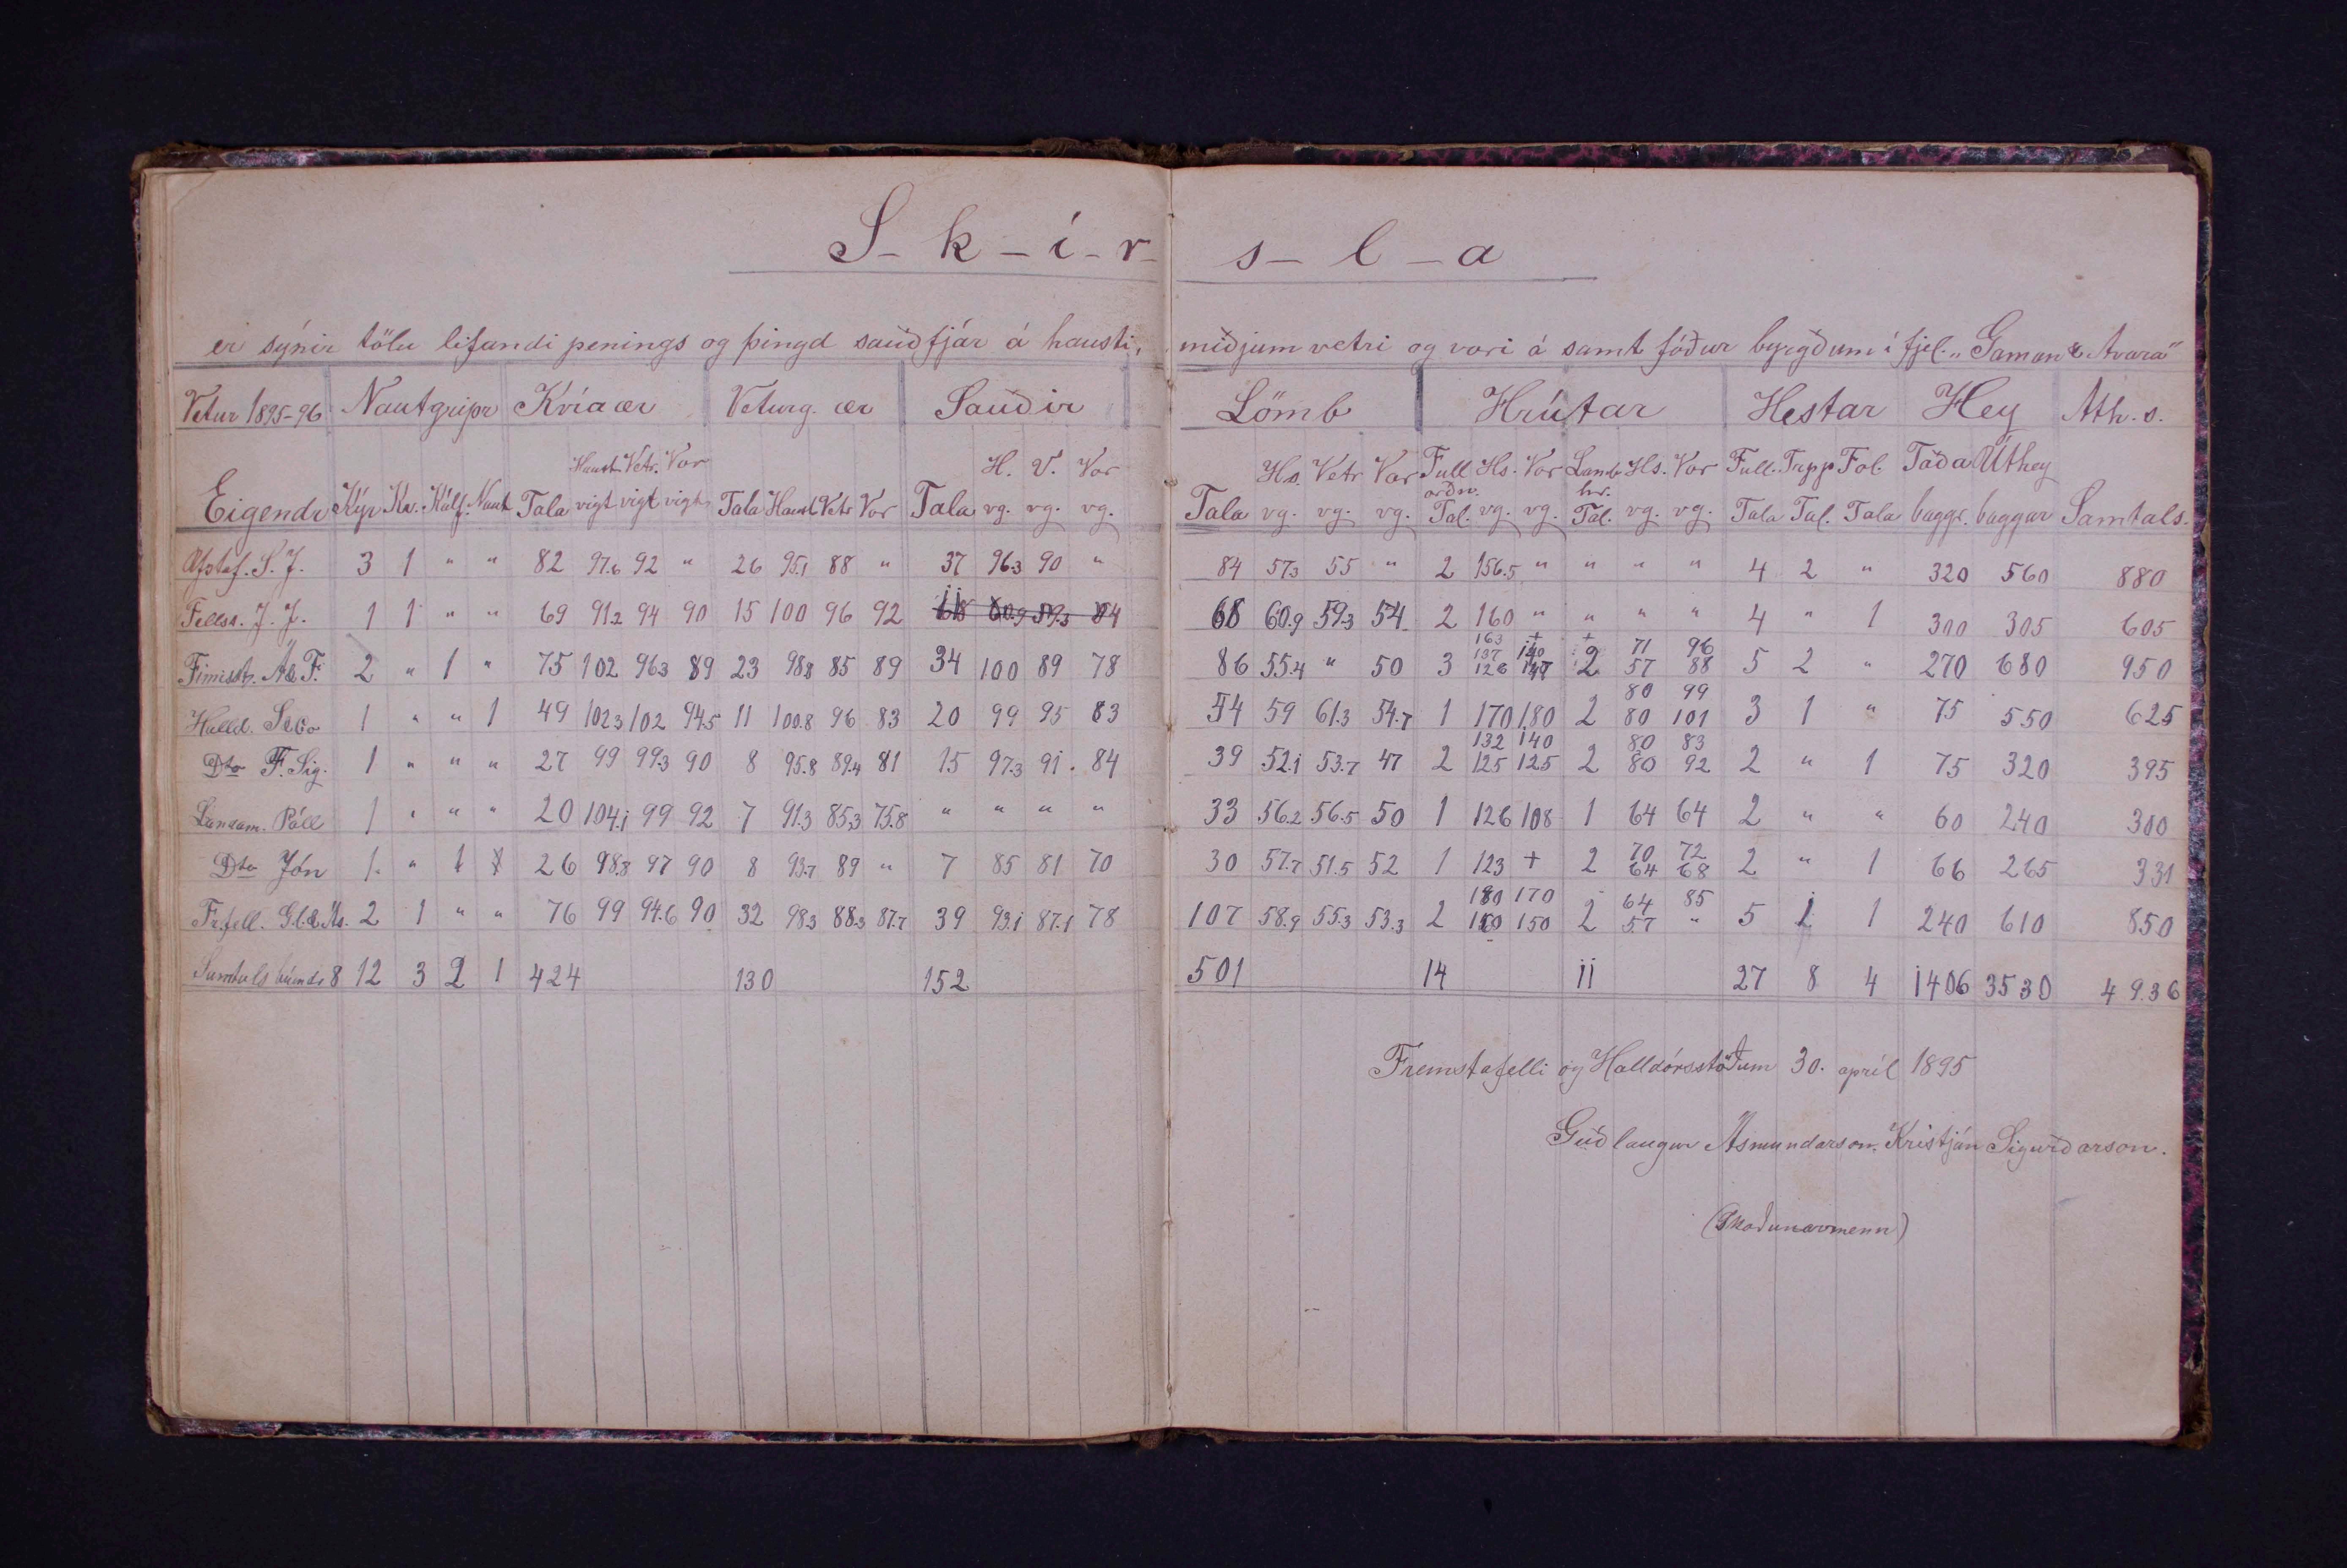 S - k - í - r - s - l - a
er sýnir tölu lifandi penings og þingd sauðfjár á hausti, miðjum vetri og vori á samt fóður byrgðum í fjel. „Gaman & Alvara"
Vetur 1895-96 Nautgripr Kvíaær Veturg. ær Sauðir Lömb Hrútar Hestar Hey Ath.s.
Haust Vetr. Vor H. V. Vor Hs. Vetr Vor Full Hs. Vor Lamb Hs. Vor Full. Tripp Fol. Taða Úthey
orðn. hr.
Eigendr Kýr Kv. Kálf. Naut Tala vigt vigt vigt Tala Haust Vetr Vor Tala vg. vg. vg. Tala vg. vg. vg. Tal. vg. vg. Tal. vg. vg. Tala Tal. Tala baggr. baggar Samtals.
S. J. 3 1 " " 82 97.6 92 " 26 95.1 88 " 37 96.3 90 " 84 57.3 55 " 2 156.5 " " " " 4 2 " 320 560 880
Fellss. J. J. 1 1 " " 69 91.2 94 90 15 100 96 92 11 68 60.9 59.3 54 68 60.9 59.3 54 2 160 " " " " 4 " 1 300 305 605
163 + +
137 140 71 96
Á & F. 2 " 1 " 75 102 96.3 89 23 98.8 85 89 34 100 89 78 86 55.4 " 50 3 126 147 2 57 88 5 2 " 270 680 950
80 99
Halld. 1 " " 1 49 102.3 102 94.5 11 100.8 96 83 20 99 95 83 54 59 61.3 54.7 1 170 180 2 80 101 3 1 " 75 550 625
132 140 80 83
Dto F. Sig. 1 " " " 27 99 99.3 90 8 95.8 89.4 81 15 97.3 91. 84 39 52.1 53.7 47 2 125 125 2 80 92 2 " 1 75 320 395
Landam. Páll 1 " " " 20 104.1 99 92 7 91.3 85.3 75.8 " " " " 33 56.2 56.5 50 1 126 108 1 64 64 2 " " 60 240 300
70 72
Dto Jón 1. " 1 26 98.8 97 90 8 93.7 89 " 7 85 81 70 30 57.7 51.5 52 1 123 + 2 64 68 2 " 1 66 265 331
180 170 64 85
Fr.fell. G. & Ás. 2 1 " " 76 99 94.6 90 32 98.3 88.3 87.7 39 93.1 87.1 78 107 58.9 55.3 53.3 2 160 150 2 57 " 5 1 1 240 610 850
Samtals búendr 8 12 3 2 1 424 130 152 501 14 11 27 8 4 1406 3530 4 9.36
Fremstafelli og Halldórsstöðum 30. apríl 1895
Guðlaugur Ásmundarson. Kristján Sigurðarson.
(Skoðunarmenn)